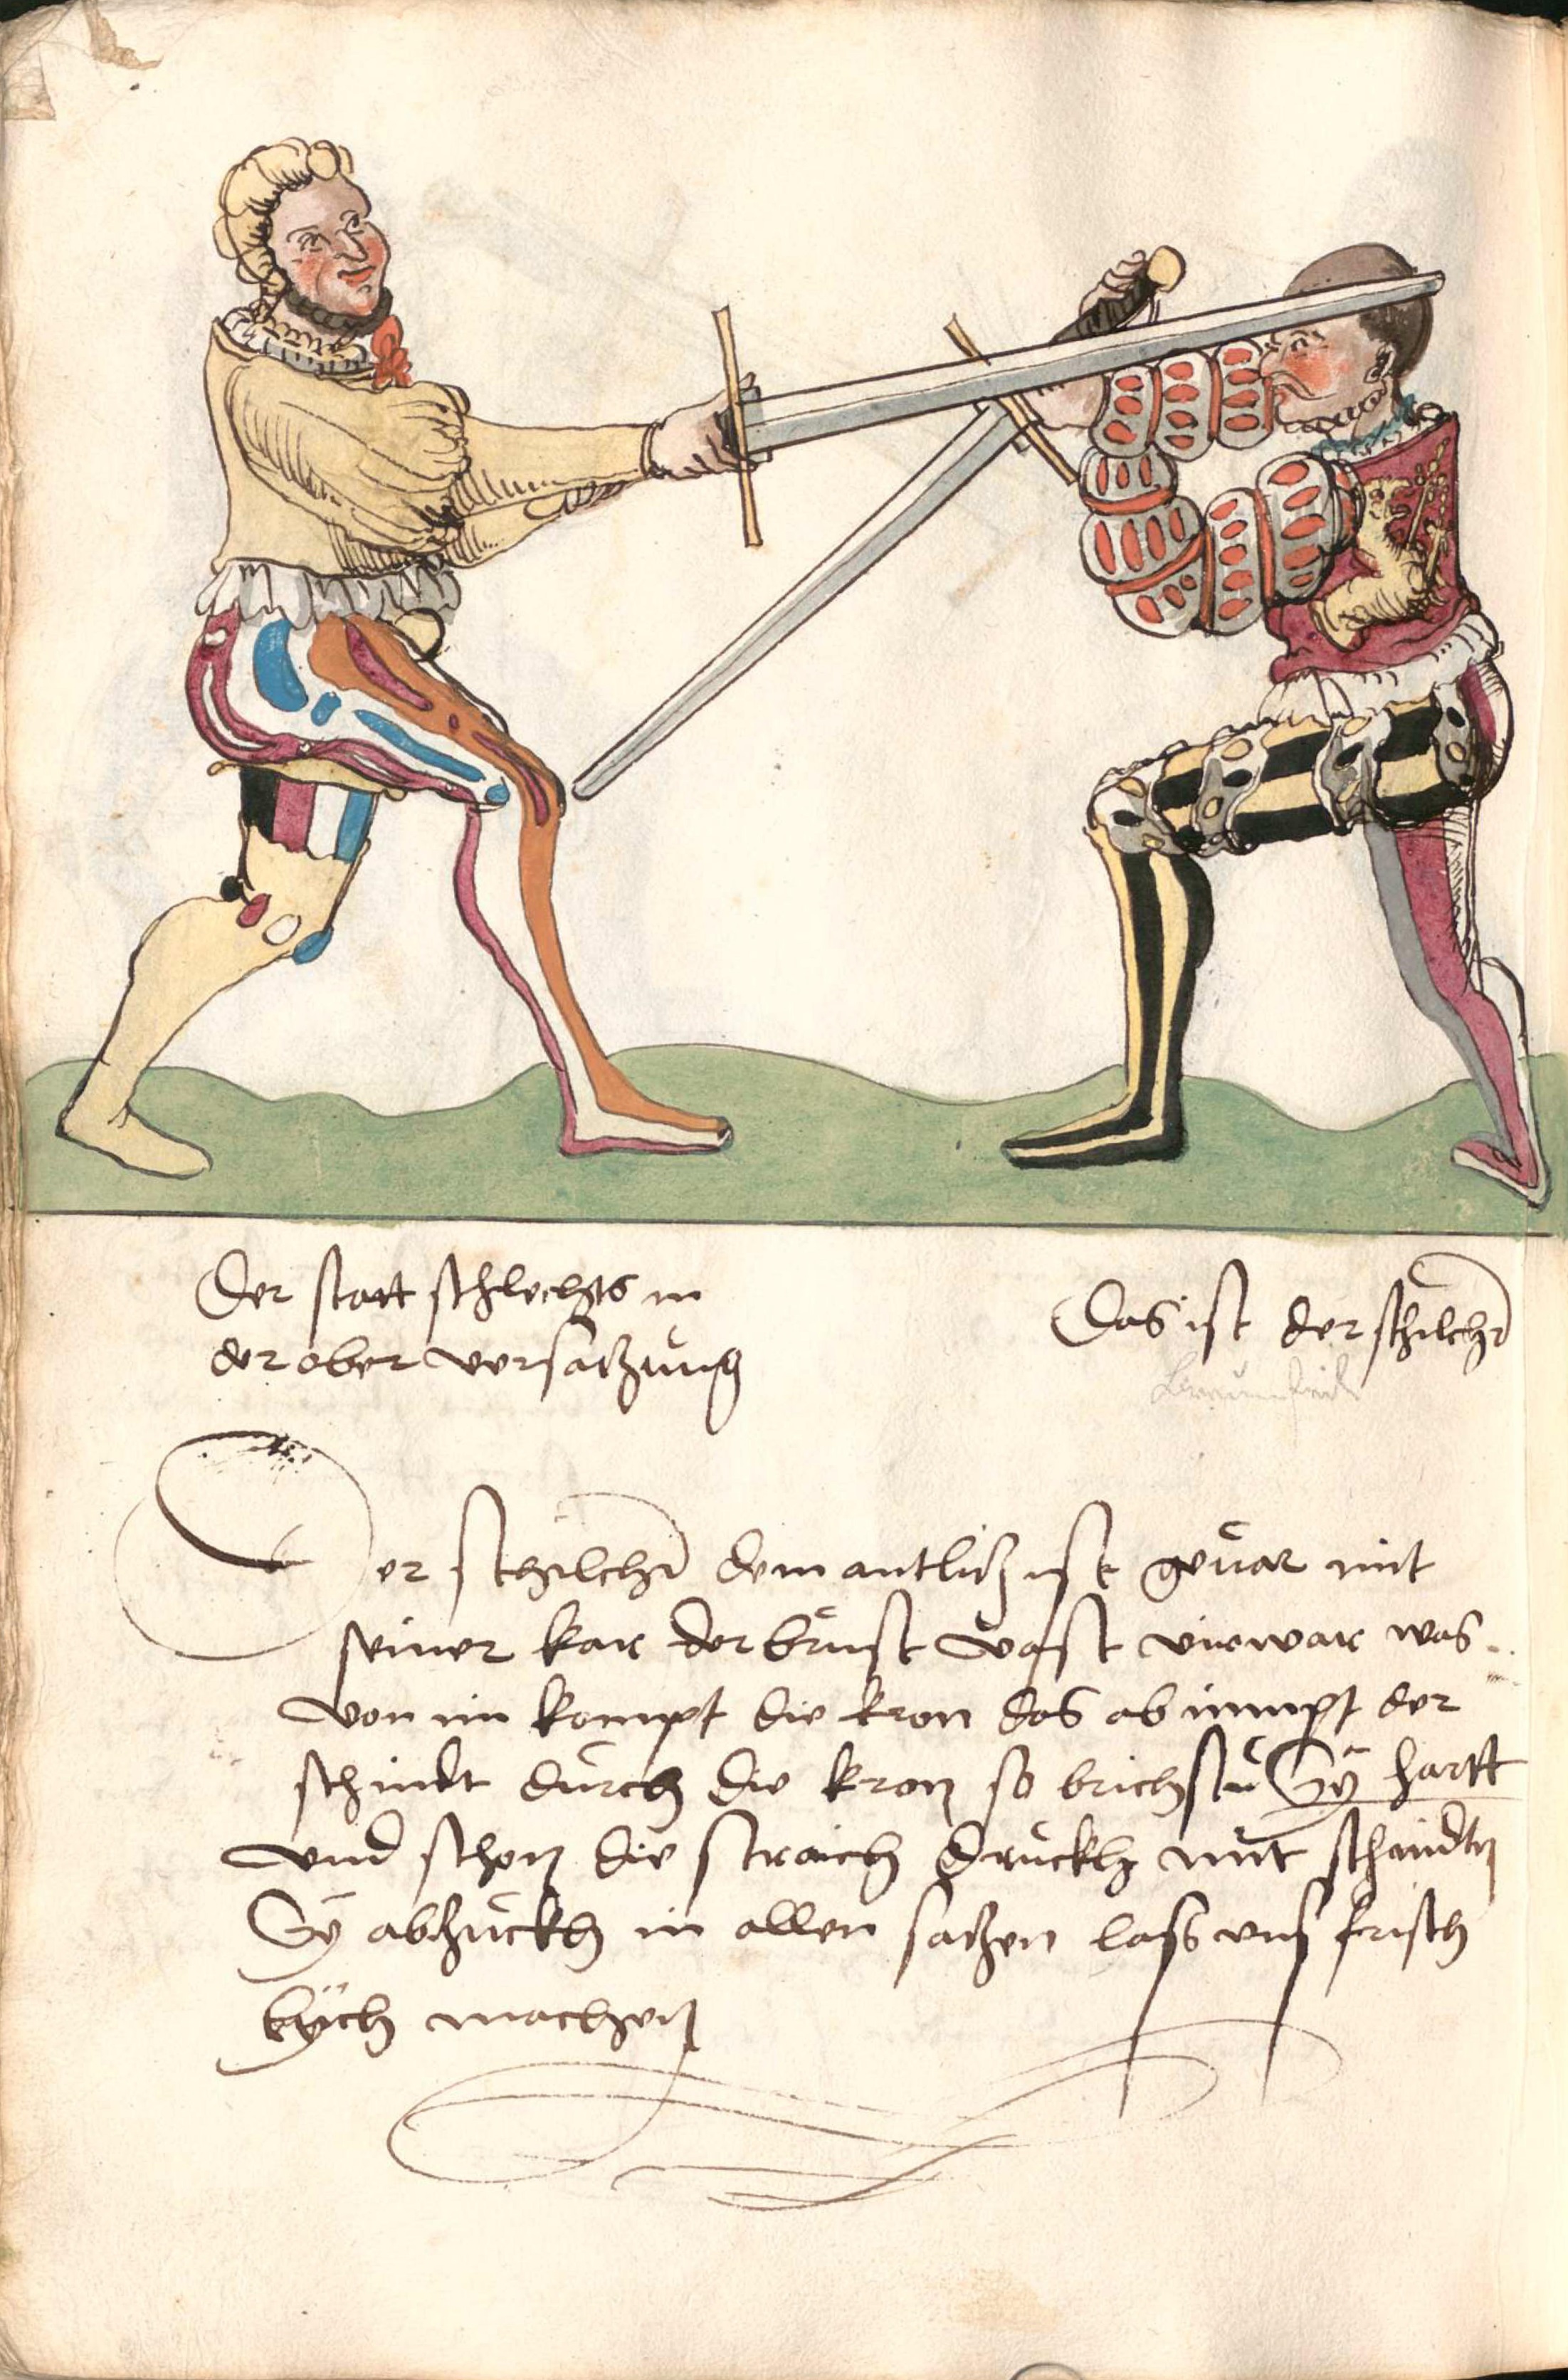 Der statt schlechts in
der ober versatzung
Das ist der schilcher
er schilcher dem antlitz ist gevar mit
seiner kar der brust vast virwar was
von im kompt die kron das ab nimpt der
schnidt durch die kron so brichstu Sy hartt
und schon die straich druckh mit schnidtn
Sy abzuckh in allen sachen lass uns frisch
kych machen